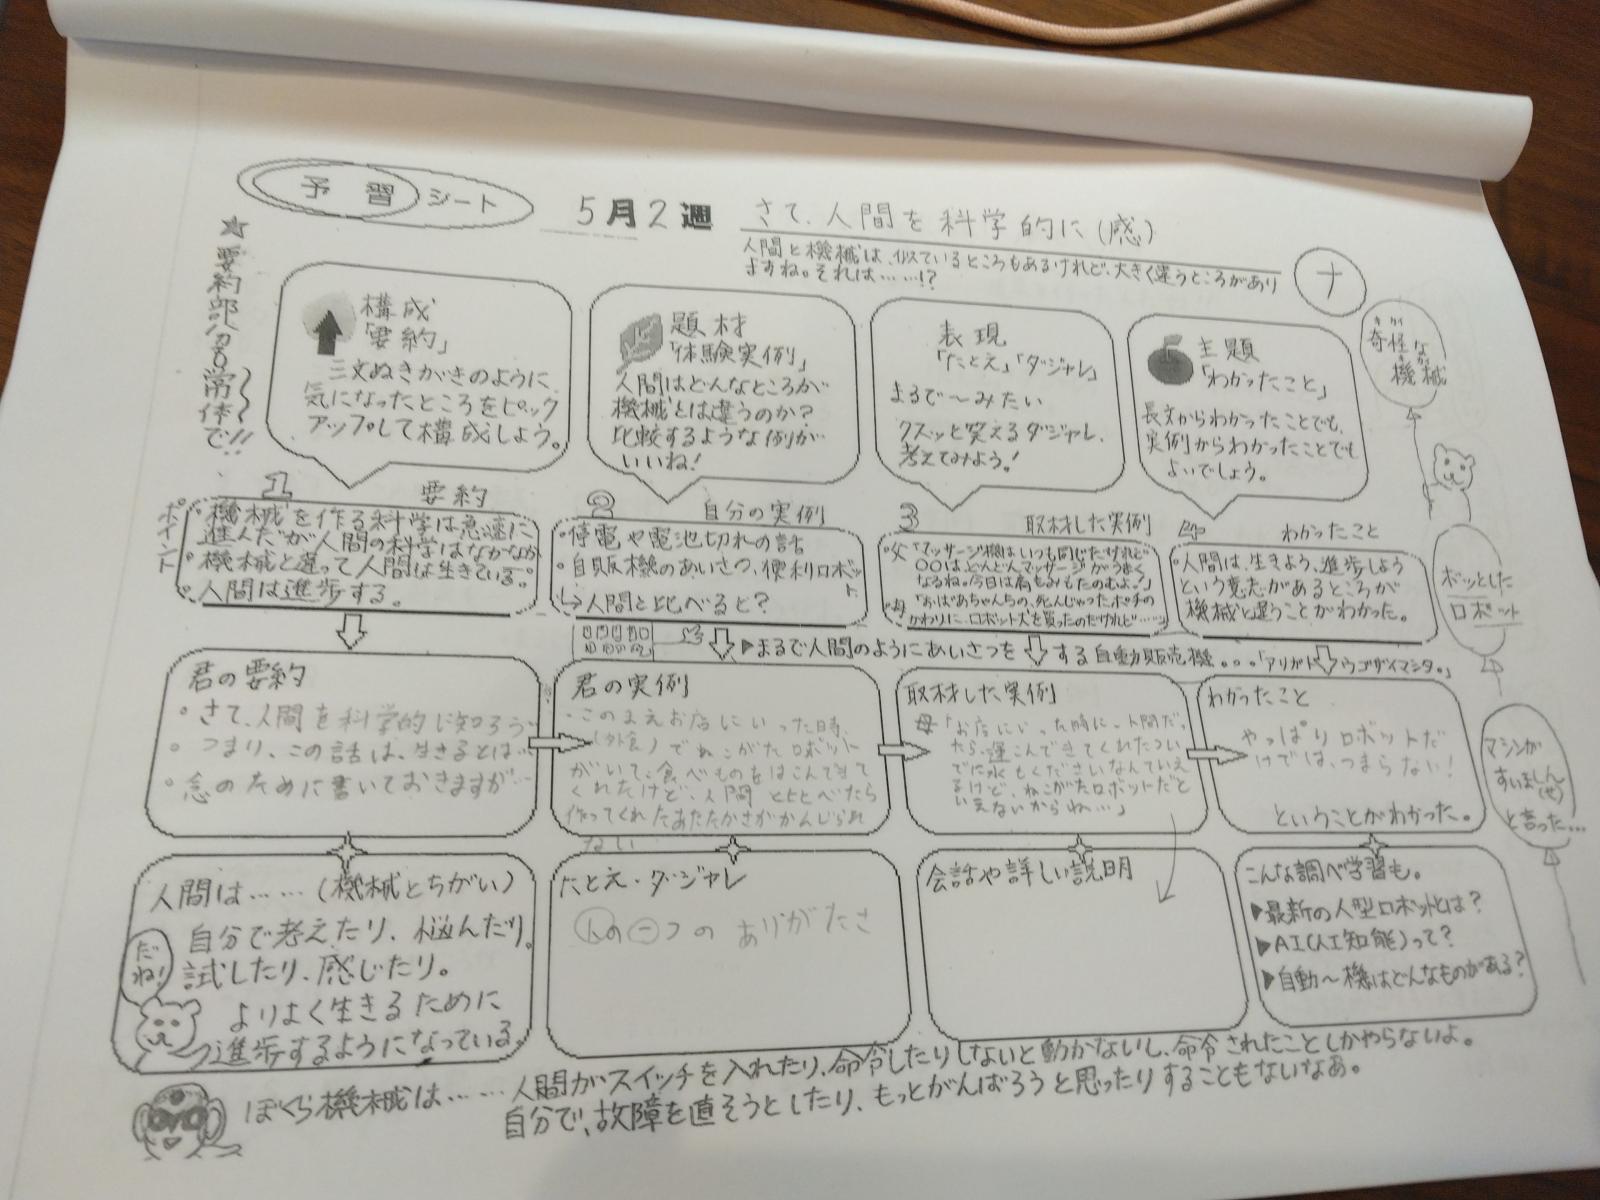 予習シート
5月2週
さて、人間を科学的に(感)
人間と機械は、似ているところもあるけれど、大きく違うところがあり
ますね。それは……!?
ナ
★要約部分も常体で!!
構成
「要約」
三文ぬきがきのように
気になったところをピック
アップして構成しよう。
題材
「体験実例」
人間はどんなところが
機械とは違うのか?
比較するような例が
いいね!
表現
「たとえ」「ダジャレ」
まるで〜みたい
クスッと笑えるダジャレ、
考えてみよう!
主題
「わかったこと」
長文からわかったことでも、
実例からわかったことでも
よいでしょう。
奇怪な
きかい
機械
きかい
ポイント
1
要約
・機械を作る科学は急速に
進んだが人間の科学はなかなか
・機械と違って人間は生きている。
・人間は進歩する。
2
自分の実例
・停電や電池切れの話
・自販機のあいさつ、便利ロボット
→人間と比べると?
3
取材した実例
・父「マッサージ機はいつも同じだけれど
〇〇はどんどんマッサージがうまく
なるね。今日は肩もみもたのむよ?」
・母「おばあちゃんちの、死んじゃったポチの
かわりに、ロボット犬を買ったのだけれど……
4
わかったこと
人間は、生きよう、進歩しよう
という意志があるところが
機械と違うことがわかった。
ボッとした
ロボット
▶まるで人間のようにあいさつをする自動販売機。。。「アリガトウゴザイマシタ。」
君の要約
・さて、人間を科学的に知ろう
・つまり、この話は、生きるとは…
・念のために書いておきますが…
君の実例
・このまえお店にいった時、
(外食)でねこがたロボット
がいて、食べものをはこんできて
くれたけど、人間と比べたら
作ってくれたあたたかさがかんじられ
ない
取材した実例
母「お店にいった時に、人間だっ
たら、運こんできてくれたつい
でに水もくださいなんていえ
るけど、ねこがたロボットだと
いえないからね…」
わかったこと
やっぱりロボットだ
けでは、つまらない!
ということがわかった。
マシンが
すいましん
(せ)
と言った…
人間は……(機械とちがい)
自分で考えたり、悩んだり、
試したり、感じたり。
よりよく生きるために
進歩するようになっている。
だね!
たとえ・ダジャレ
人の一つのありがたさ
会話や詳しい説明
こんな調べ学習も。
▶最新の人型ロボットとは?
▶AI(人工知能)って?
▶自動〜機はどんなものがある?
ぼくら機械は……人間がスイッチを入れたり、命令したりしないと動かないし、命令されたことしかやらないよ。
自分で、故障を直そうとしたり、もっとがんばろうと思ったりすることもないなあ。